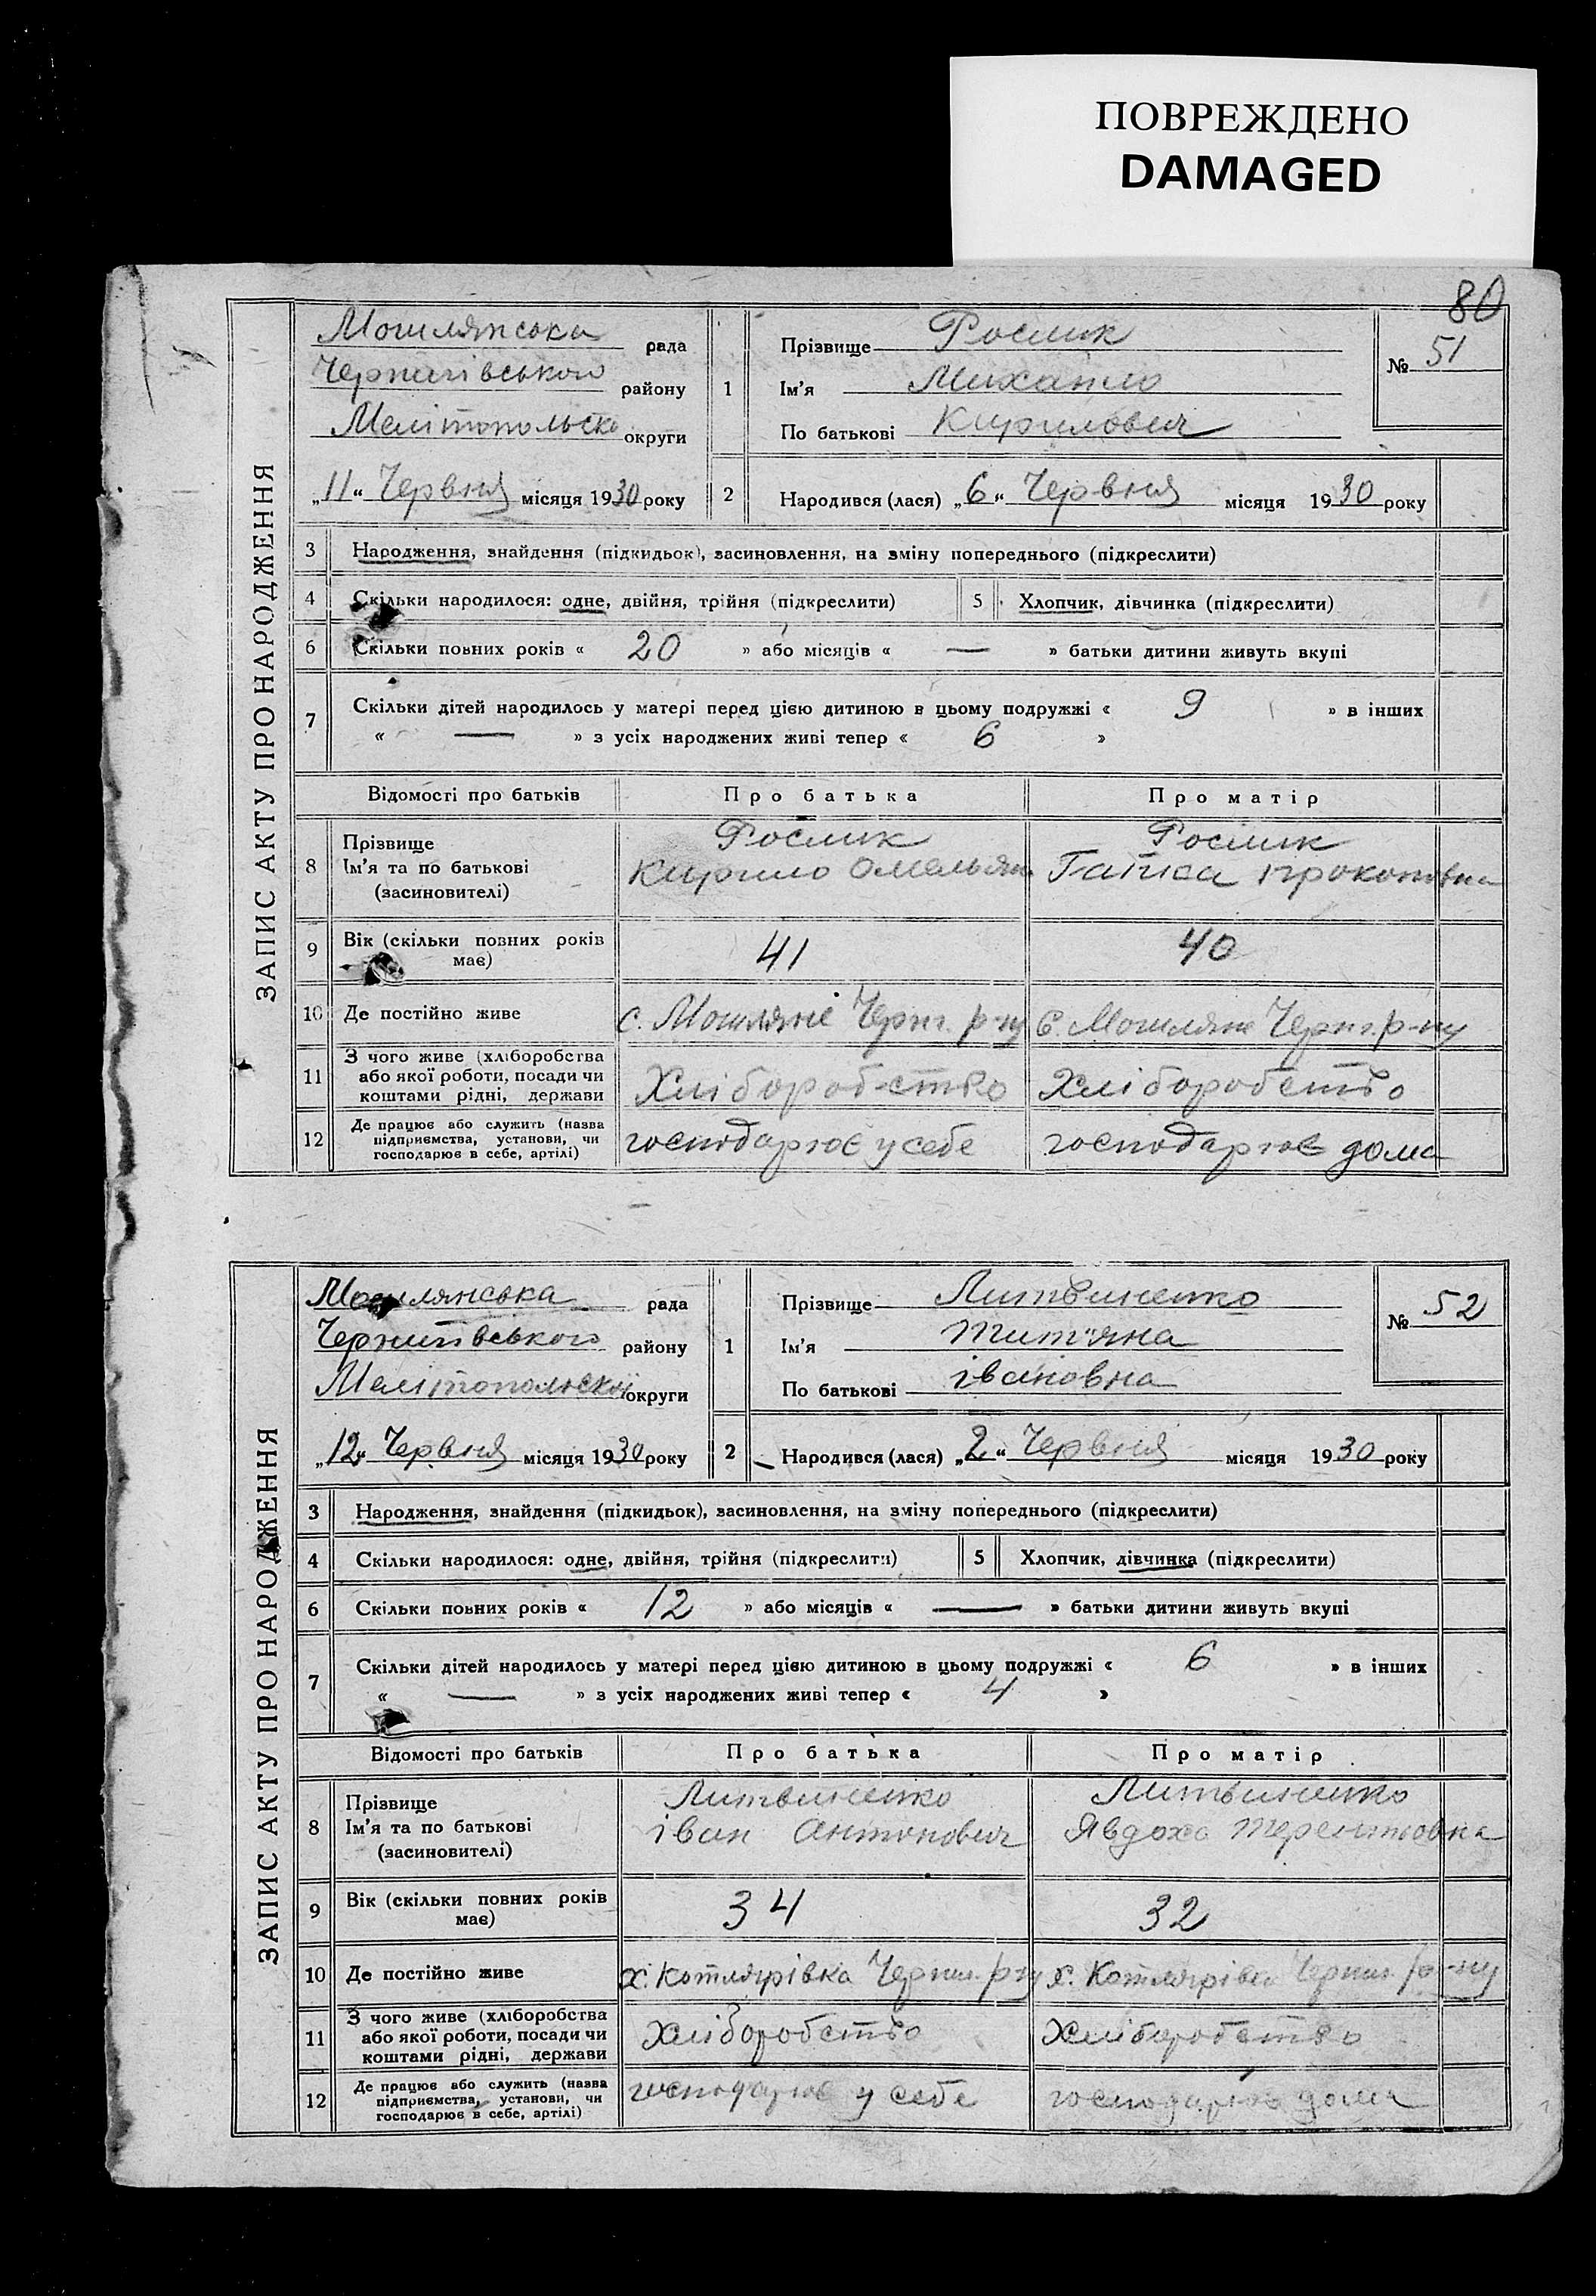 ПОВРЕЖДЕНО
DAMAGED
80
ЗАПИС АКТУ ПРО НАРОДЖЕННЯ
рада
Чернигівського району
Мелітопольско округи
„11“ Червня місяця 1930 року
1 Прізвище Рослик
Ім'я Михайло
По батькові Кирилович
№ 51
2 Народився (лася) „6“ Червня місяця 1930 року
3 Народження, знайдення (підкидьок), засиновлення, на зміну попереднього (підкреслити)
4 Скільки народилося: одне, двійня, трійня (підкреслити) 5 Хлопчик, дівчинка (підкреслити)
6 Скільки повних років « 20 » або місяців « — » батьки дитини живуть вкупі
7 Скільки дітей народилось у матері перед цією дитиною в цьому подружжі « 9 » в інших
« — » з усіх народжених живі тепер « 6 »
Відомості про батьків Про батька Про матір
8 Прізвище Рослик Рослик
Ім'я та по батькові Кирило Омельян Ганна Прокоповна
(засиновителі)
9 Вік (скільки повних років має) 41 40
10 Де постійно живе с. р-ну с. р-ну
11 З чого живе (хліборобства
або якої роботи, посади чи Хліборобство Хліборобство
коштами рідні, держави
12 Де працює або служить (назва
підприємства, установи, чи господарює у себе господарює дома
господарює в себе, артілі)
ЗАПИС АКТУ ПРО НАРОДЖЕННЯ
рада
Чернигівського району
Мелітопольскої округи
„12“ Червня місяця 1930 року
1 Прізвище Литвиненко
Ім'я Титяна
По батькові івановна
№ 52
2 Народився (лася) „2“ Червня місяця 1930 року
3 Народження, знайдення (підкидьок), засиновлення, на зміну попереднього (підкреслити)
4 Скільки народилося: одне, двійня, трійня (підкреслити) 5 Хлопчик, дівчинка (підкреслити)
6 Скільки повних років « 12 » або місяців « — » батьки дитини живуть вкупі
7 Скільки дітей народилось у матері перед цією дитиною в цьому подружжі « 6 » в інших
« — » з усіх народжених живі тепер « 4 »
Відомості про батьків Про батька Про матір
8 Прізвище Литвиненко Литвиненко
Ім'я та по батькові іван Антонович Явдоха Терентьовна
(засиновителі)
9 Вік (скільки повних років має) 34 32
10 Де постійно живе х. Котлярівка р-ну х. Котлярівка р-ну
11 З чого живе (хліборобства
або якої роботи, посади чи Хліборобство Хліборобство
коштами рідні, держави
12 Де працює або служить (назва
підприємства, установи, чи господарює у себе господарює дома
господарює в себе, артілі)